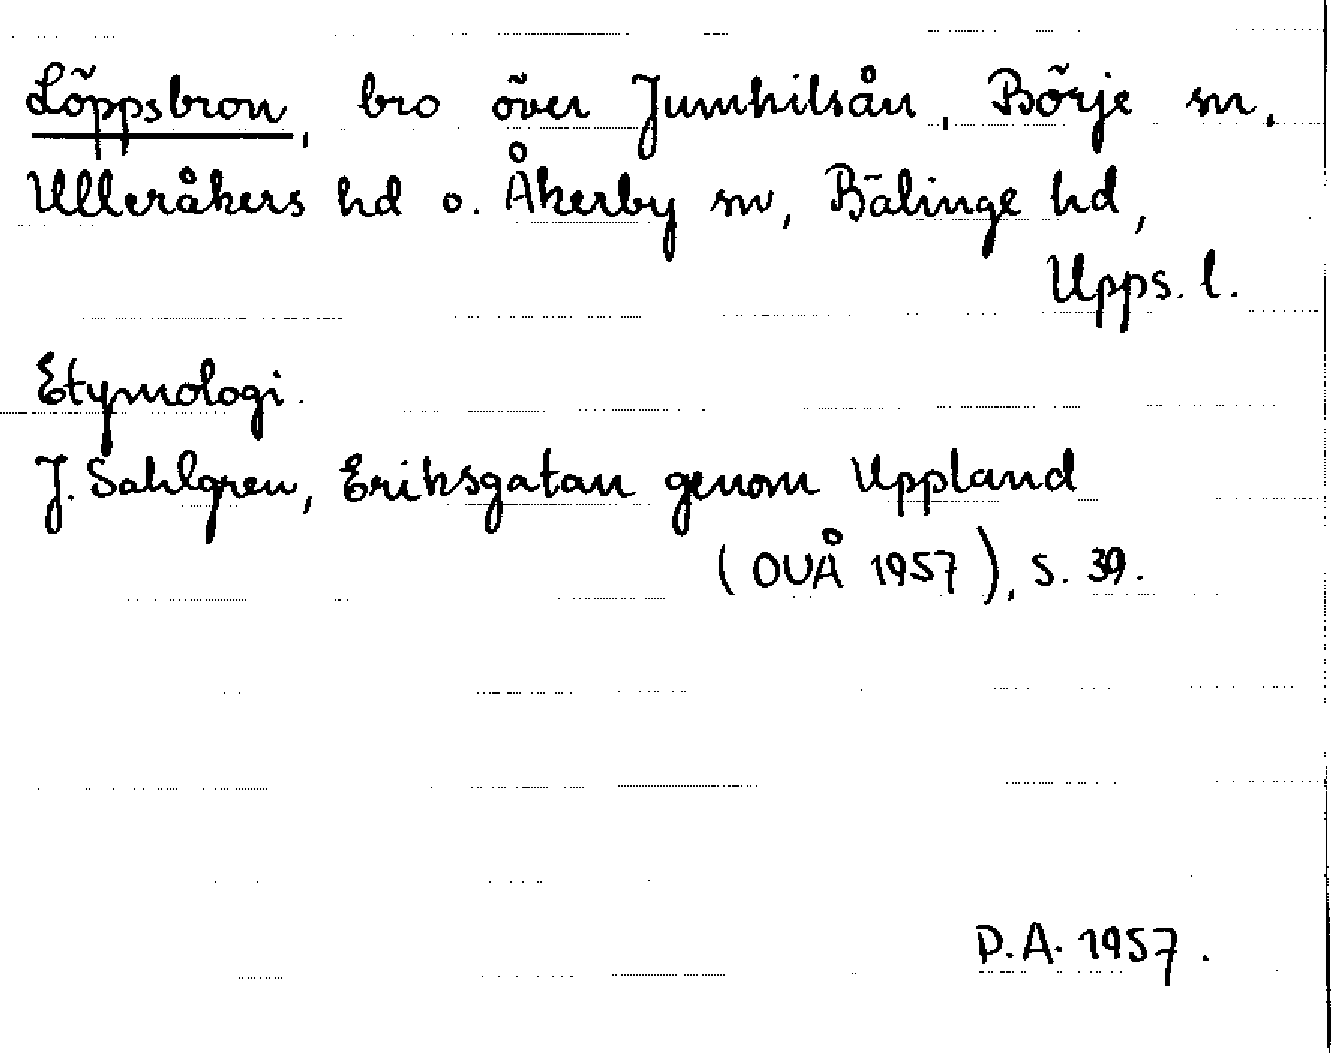 Löppsbron, bro över Jumkilsån, Börje sn,
Ulleråkers hd o. Åkerby sn, Bälinge hd,
Upps. l.
Etymologi.
J. Sahlgren, Eriksgatan genom Uppland
(OUÅ 1957), s. 39.
D.A. 1957.